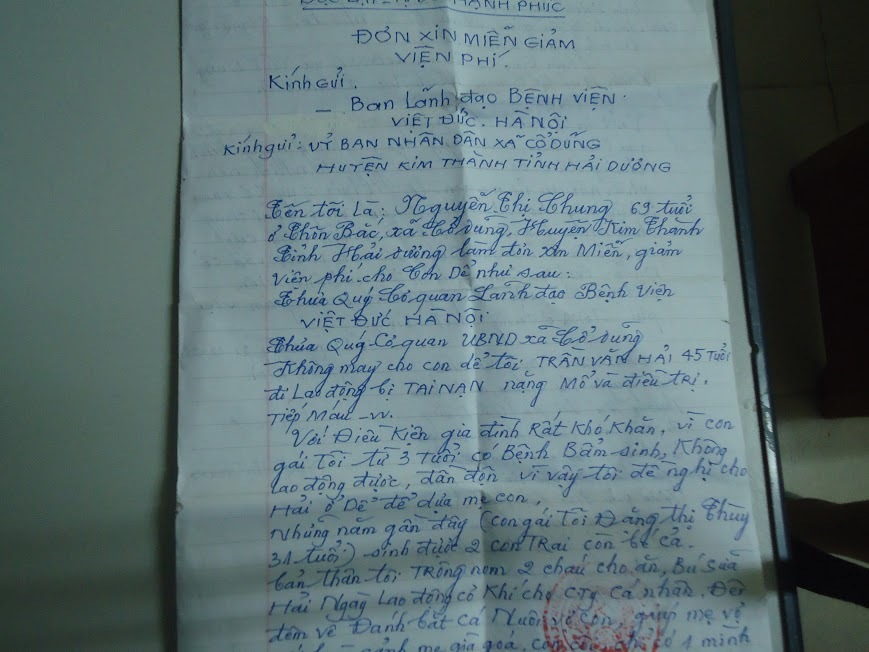 HẠNH PHÚC
ĐƠN XIN MIỄN GIẢM
VIỆN PHÍ.
Kính Gửi.
– Ban Lãnh đạo BỆNH VIỆN.
VIỆT ĐỨC. HÀ NỘI
Kính gửi: UỶ BAN NHÂN DÂN XÃ CỔ DŨNG
HUYỆN KIM THÀNH TỈNH HẢI DƯƠNG
Tên tôi Là: Nguyễn Thị Chung 69 tuổi
ở Thôn Bắc, xã Cổ Dũng, Huyện Kim Thành
Tỉnh Hải Dương làm đơn xin Miễn, giảm
viện phí cho Con Dể như sau:
Thưa Quý Cơ quan Lãnh đạo Bệnh Viện
VIỆT ĐỨC HÀ NỘI
Thưa Quý Cơ quan UBND xã Cổ Dũng
Không may cho con dể tôi TRẦN VĂN HẢI 45 TUỔI
đi Lao động bị TAI NẠN nặng Mổ và điều trị.
Tiếp Máu –vv.
Với Điều Kiện gia đình Rất Khó Khăn, vì con
gái Tôi từ 3 Tuổi có Bệnh Bẩm sinh, Không
Lao động được, đần độn vì vậy tôi đề nghị cho
Hải ở Dể để dựa mẹ con,
Những năm gần đây (con gái Tôi Đặng thị Thùy
31 tuổi) sinh được 2 con TRai còn bé cả.
bản thân tôi TRông nom 2 cháu cho ăn, Bú sữa
Hải Ngày Lao động cơ Khí cho CTY Cá nhân. Đến
đêm về Đánh bắt cá Nuôi vợ con, giúp mẹ vợ
mẹ già goá, có 1 mình